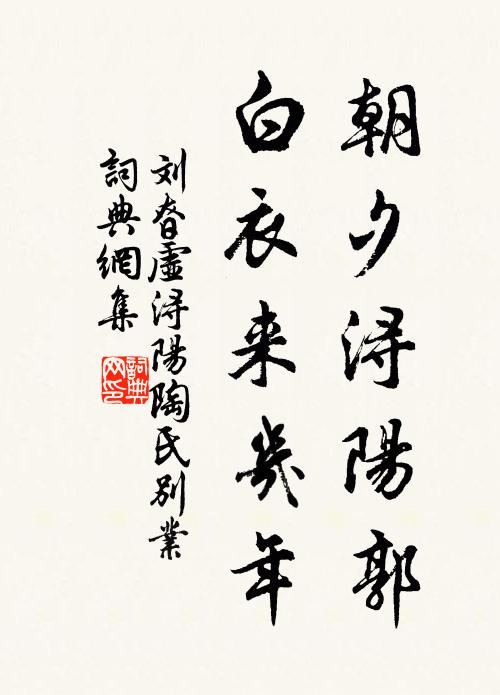 朝夕浔陽郭
白衣来幾年
刘昚虚浔陽陶氏别業
詞典網集
詞典网印